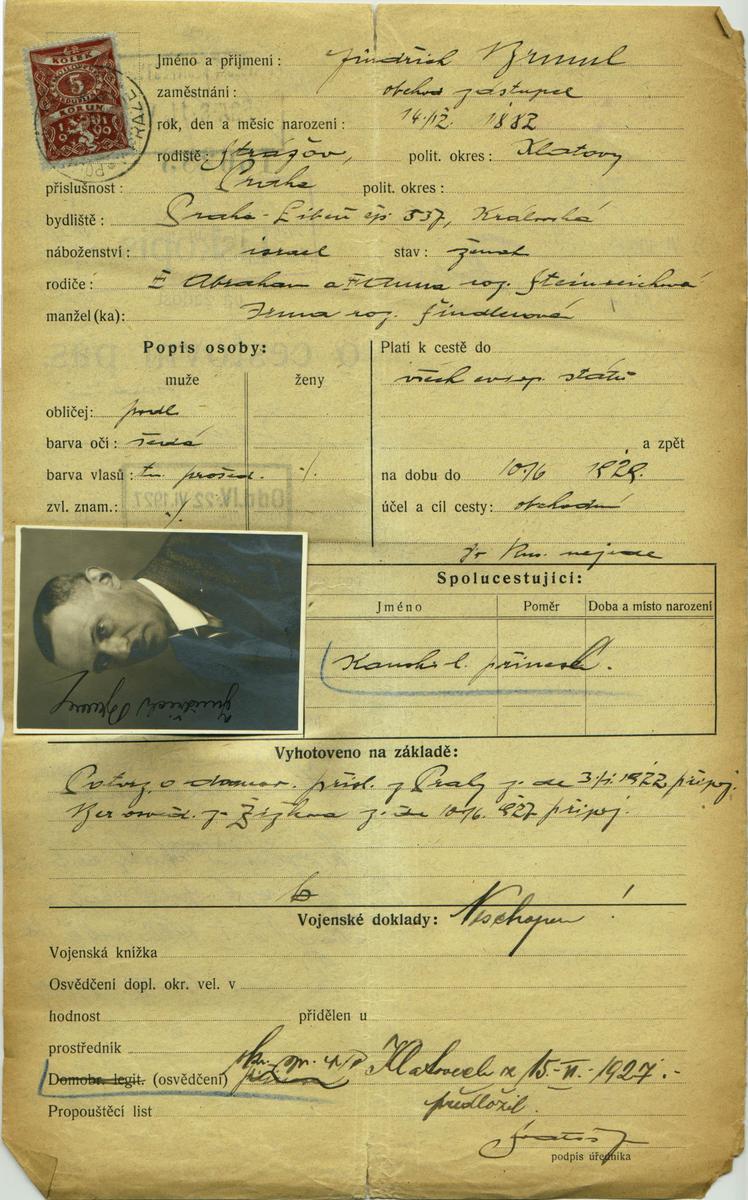 KOLEK
5
KORUN
PRAZE
Jméno a příjmení: Jindřich Bruml
zaměstnání: obchod zástupce
rok, den a měsíc narození: 14/IX. 1882
rodiště: Strážov, polit. okres: Klatovy
příslušnost: Praha polit. okres:
bydliště: Praha-Libeň čp. 537, Královská
náboženství: israel stav: ženat
rodiče: Abraham a Anna roz. Steinreichová
manžel(ka): Irma roz. Šindlerová
Popis osoby:
muže ženy
obličej: podl
barva očí: šedá
barva vlasů: tm. prošed. ·/.
zvl. znam.: ·/.
Platí k cestě do
všech evrop. států
a zpět
na dobu do 10/6 1929.
účel a cíl cesty: obchodní
do Rus. nejede
Odd. IV. 22. VI. 1927
Jindřich Bruml
Spolucestující:
Jméno Poměr Doba a místo narození
Vyhotoveno na základě:
Potvrz. o domov. přísl. z Prahy z. de 3/I. 1922 připoj.
Ber osvěd. z Žižkova z. de 10/6. 927 připoj.
Vojenské doklady: Neschopen!
Vojenská knížka
Osvědčení dopl. okr. vel. v
hodnost přidělen u
prostředník
Domobr. legit. (osvědčení) Klatovech z 15.-II.-1927.-
předložil.
Propouštěcí list
podpis úředníka